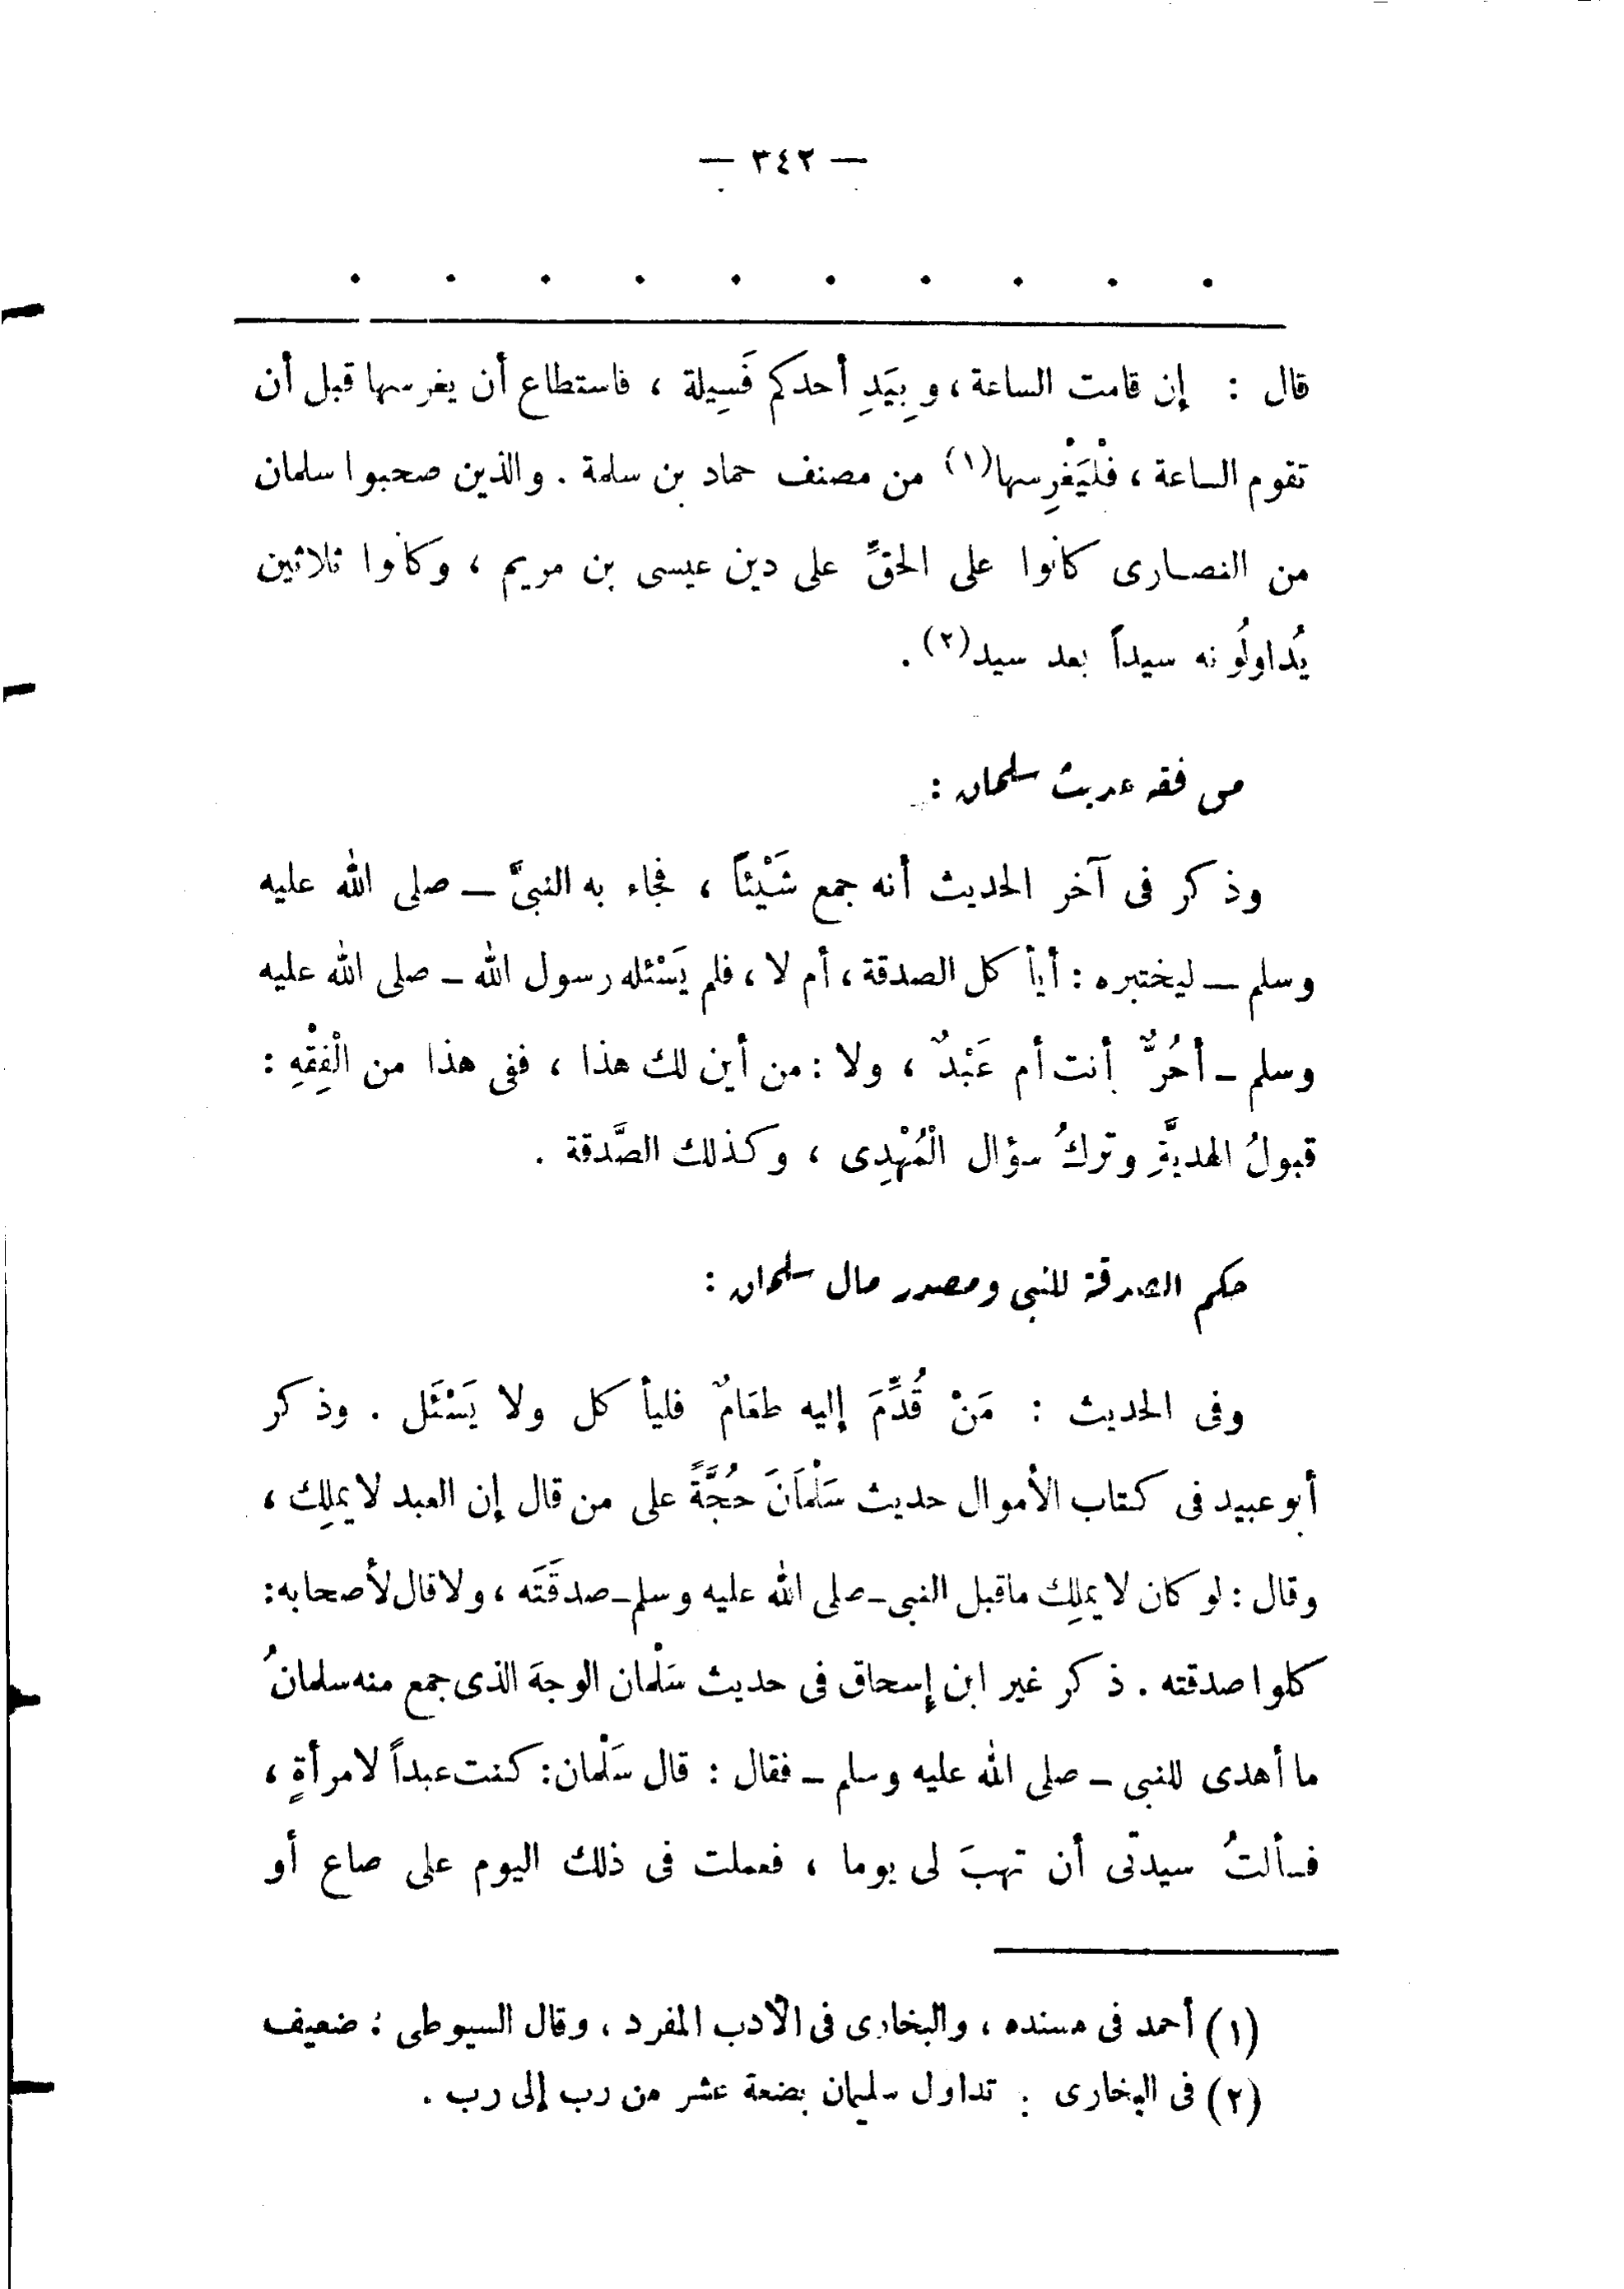 — ٣٤٢ —
. . . . . . . . . .
قال : إن قامت الساعة ، وبِيَدِ أحدكم فَسِيلة ، فاستطاع أن يغرسها قبل أن
تقوم الساعة ، فلْيَغْرِسها(١) من مصنف حماد بن سلمة . والذين صحبوا سلمان
من النصارى كانوا على الحقِّ على دين عيسى بن مريم ، وكانوا ثلاثين
يُداولُونه سيداً بعد سيد(٢) .
من فقه حديث سلمان :
وذكر فى آخر الحديث أنه جمع شَيْئاً ، فجاء به النبىَّ — صلى الله عليه
وسلم — ليختبره : أيأكل الصدقة ، أم لا ، فلم يَسْئله رسول الله — صلى الله عليه
وسلم — أحُرٌّ أنت أم عَبْدٌ ، ولا : من أين لك هذا ، ففى هذا من الْفِقْهِ :
قبولُ الهديَّةِ وتركُ سؤال الْمُهْدِى ، وكذلك الصَّدقة .
حكم الصدقة للنبى ومصدر مال سلمان :
وفى الحديث : مَنْ قُدِّمَ إليه طعَامٌ فليأكل ولا يَسْئَل . وذكر
أبو عبيد فى كتاب الأموال حديث سَلْمَانَ حُجَّةً على من قال إن العبد لا يملِك ،
وقال : لو كان لا يملِك ما قبل النبى — صلى الله عليه وسلم — صدقَتَه ، ولا قال لأصحابه :
كلوا صدقته . ذكر غير ابن إسحاق فى حديث سَلْمان الوجهَ الذى جمع منه سلمانُ
ما أهدى للنبى — صلى الله عليه وسلم — فقال : قال سَلْمان : كنت عبداً لامرأةٍ ،
فسألتُ سيدتى أن تهبَ لى يوما ، فعملت فى ذلك اليوم على صاع أو
(١) أحمد فى مسنده ، والبخارى فى الأدب المفرد ، وقال السيوطى : ضعيف
(٢) فى البخارى : تداول سليمان بضعة عشر من رب إلى رب .